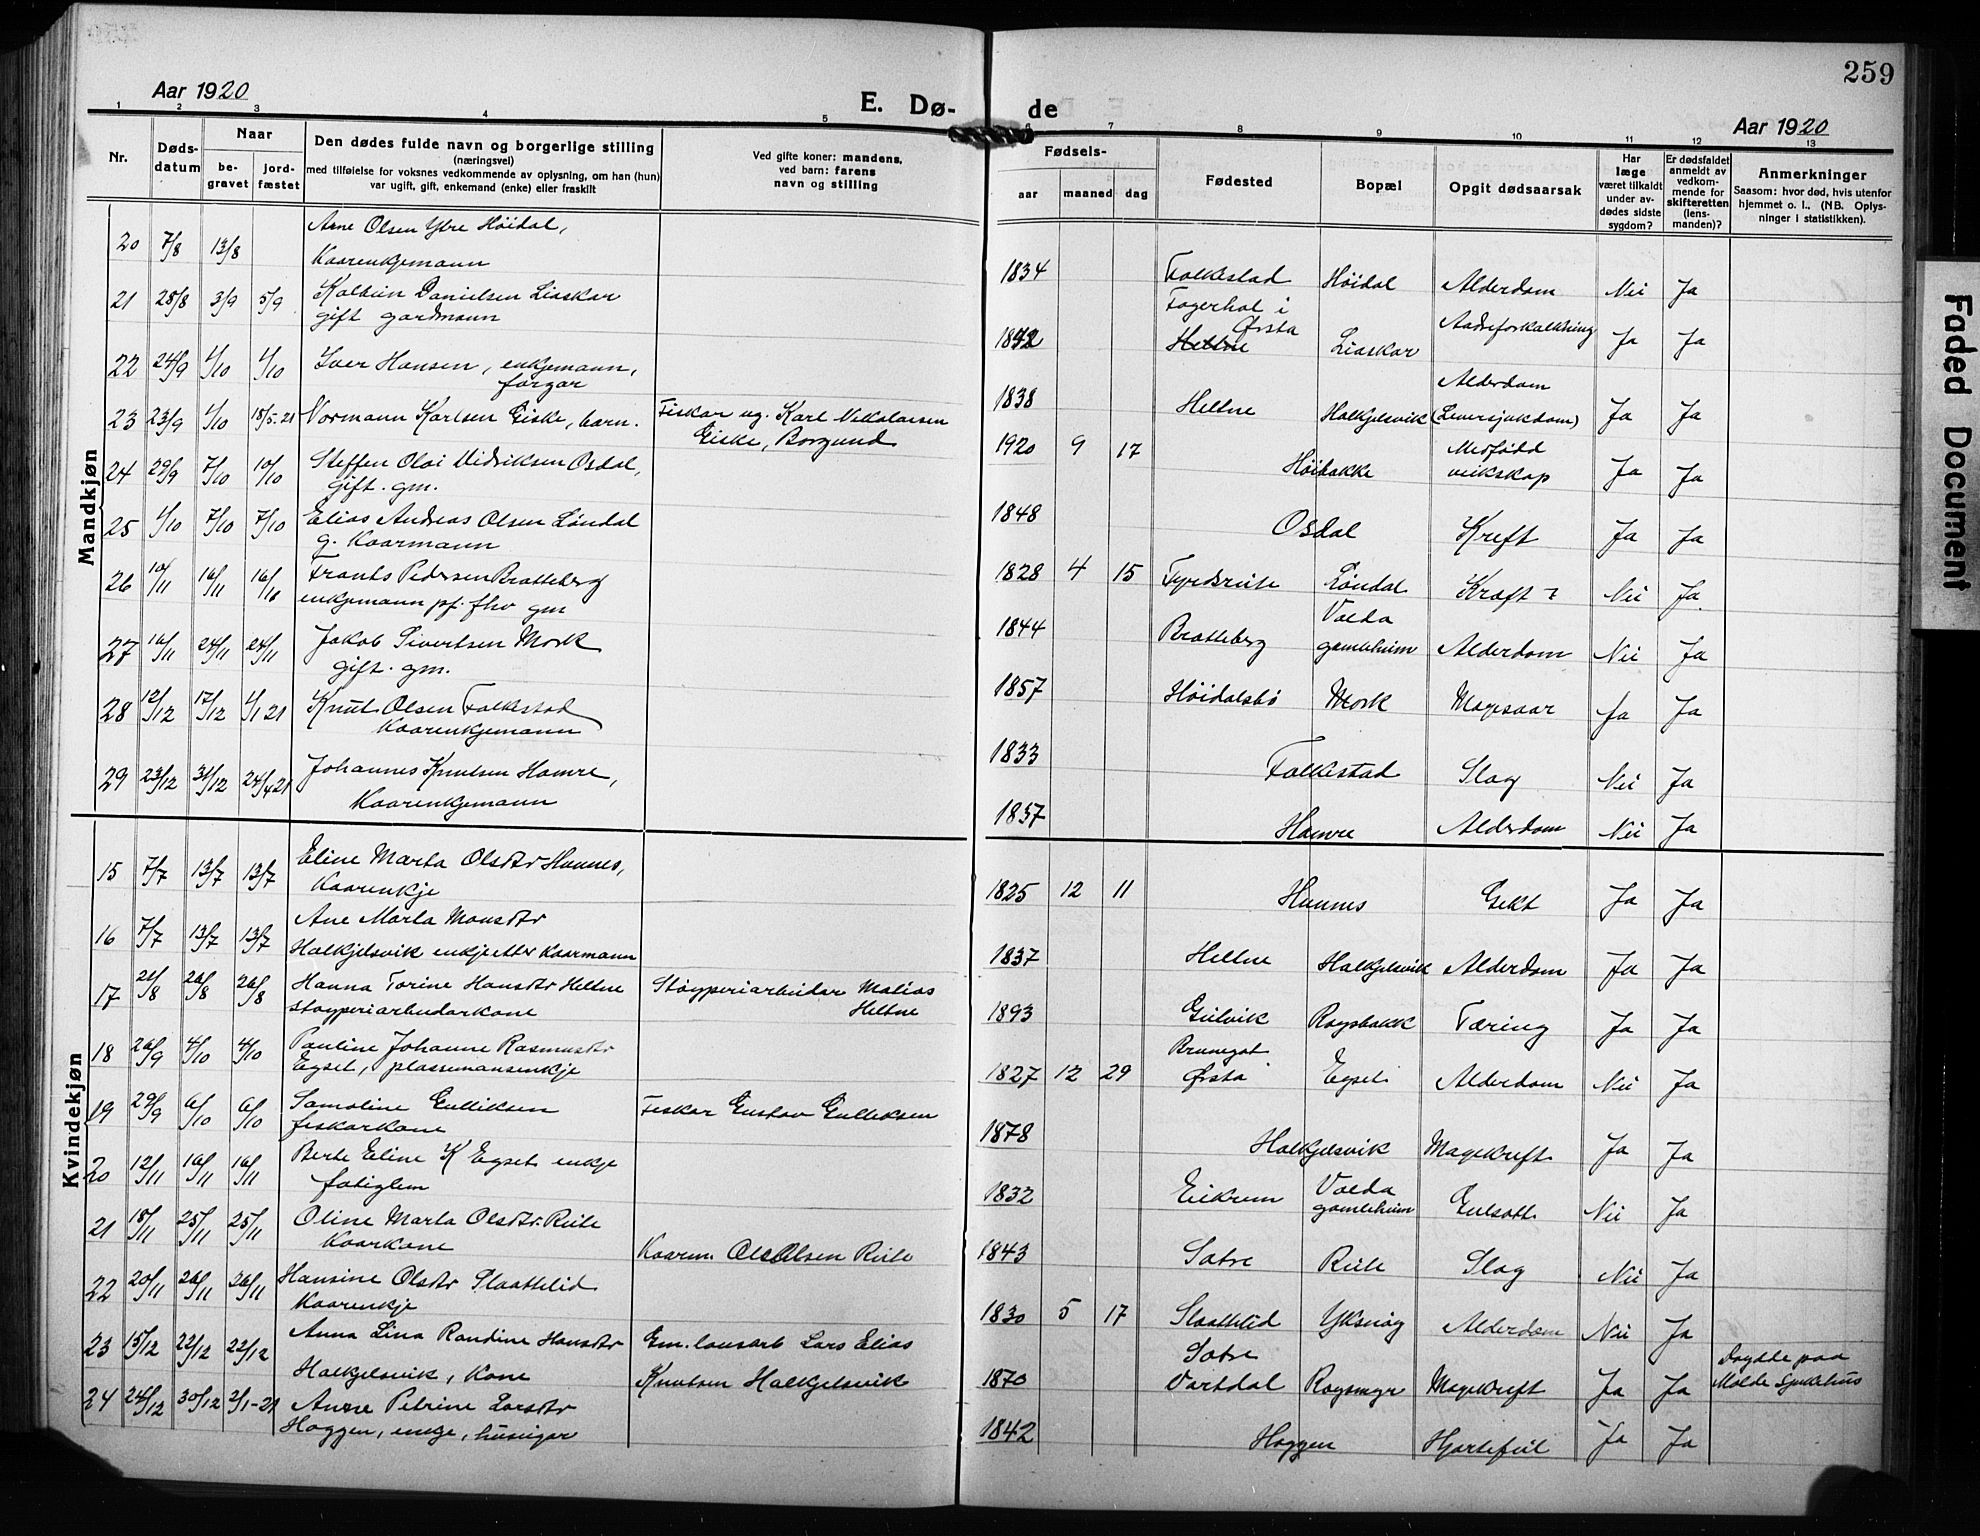 Aar 1920
E. Dø-
de
Aar 1920
259
1 2 3 4 5
6 7 8 9 10 11 12 13
Nr.
Døds-
datum
Naar
be-
gravet
jord-
fæstet
Den dødes fulde navn og borgerlige stilling
(næringsvei)
med tilføielse for voksnes vedkommende av oplysning, om han (hun)
var ugift, gift, enkemand (enke) eller fraskilt
Ved gifte koner: mandens,
ved barn: farens
navn og stilling
Fødsels-
aar maaned dag
Fødested
Bopæl
Opgit dødsaarsak
Har
læge
været tilkaldt
under av-
dødes sidste
sygdom?
Er dødsfaldet
anmeldt av
vedkom-
mende for
skifteretten
(lens-
manden)?
Anmerkninger
Saasom: hvor død, hvis utenfor
hjemmet o. l., (NB. Oplys-
ninger i statistikken).
Mandkjøn
20 7/8 13/8 Arne Olsen Ytre Höidal,
Kaarenkjemann
1834 Folkestad Höidal Alderdom Nei Ja
21 28/8 3/9 5/9 Kolbein Danielsen Liaskar
gift gardmann
1842 Fagerhol i
Ørsta
Heltne Liaskar Aadreforkalkning Ja Ja
22 24/9 1/10 1/10 Iver Hansen, enkjemann,
forgar
1838 Heltne Halkjelsvik Alderdom
(Leversjukdom) Ja Ja
23 23/9 1/10 18/5-21 Normann Karlsen Giske, barn. Fiskar ug. Karl Nikolaisen
Giske, Borgund
1920 9 17 Höibakke Medfødd
veikskap Ja Ja
24 29/9 7/10 10/10 Steffen Oloi Didriksen Osdal,
gift. gm.
1848 Osdal Kreft Ja Ja
25 1/10 7/10 7/10 Elias Andreas Olsen Löndal
g. Kaarmann
1828 4 15 Fyrdsreite Löndal Kræft ? Nei Ja
26 10/11 16/11 16/11 Frants Pedersen Bratteberg
enkjemann pf. fhv gm
1844 Bratteberg Volda
gamleheim Alderdom Nei Ja
27 16/11 24/11 24/11 Jakob Sivertsen Mork
gift. gm.
1857 Höidalsbö Mork Magesaar Ja Ja
28 12/12 17/12 4/1 21 Knut Olsen Folkestad
Kaarenkjemann
1833 Folkestad Slag Nei Ja
29 23/12 31/12 24/4 21 Johannes Knutsen Hamre,
Kaarenkjemann
1837 Hamre Alderdom Nei Ja
Kvindekjøn
15 7/7 13/7 13/7 Eline Marta Olsdtr Humnes,
Kaarenkje
1825 12 11 Humnes Gikt Ja Ja
16 7/7 13/7 13/7 Ane Marta Monsdtr
Halkjelsvik enkje etter Kaarmann
1837 Heltne Halkjelsvik Alderdom Ja Ja
17 21/8 26/8 26/8 Hanna Torine Hansdtr Heltne
støyperiarbeidarkone Støyperiarbeidar Matias
Heltne
1893 Geilvik Roysbakk Tæring Ja Ja
18 26/9 4/10 4/10 Pauline Johanne Rasmusdtr
Egset, plassemansenkje
1827 12 29 Brunegot
Ørsta Egset Alderdom Nei Ja
19 29/9 6/10 6/10 Samoline Gulliksen
fiskarkone Fiskar Gustav Gulliksen
1878 Halkjelsvik Magekreft Ja Ja
20 12/11 16/11 16/11 Berte Eline K Egset enkje
fatiglem
1832 Eikrem Volda
gamleheim Gulsott Nei Ja
21 18/11 25/11 25/11 Oline Marta Olsdtr. Reite
Kaarkone Kaarm. Ole Olsen Reite
1843 Sætre Reite Slag Nei Ja
22 20/11 26/11 26/11 Hansine Olsdtr Slaattelid
Kaarenkje
1830 5 17 Slaattelid Yksnöy Alderdom Nei Ja
23 15/12 22/12 22/12 Anna Lina Randine Hansdtr
Halkjelsvik, Kone Em. lausarb Lars Elias
Knutsen Halkjelsvik
1870 Sætre
Vartdal Roysmyr Magekreft Ja Ja Döydde paa
Molde Sjukehus
24 24/12 30/12 2/1-21 Anne Petrine Larsdtr
Haggen, enkje, husigar
1842 Haggen Hjartefeil Ja Ja
Faded Document